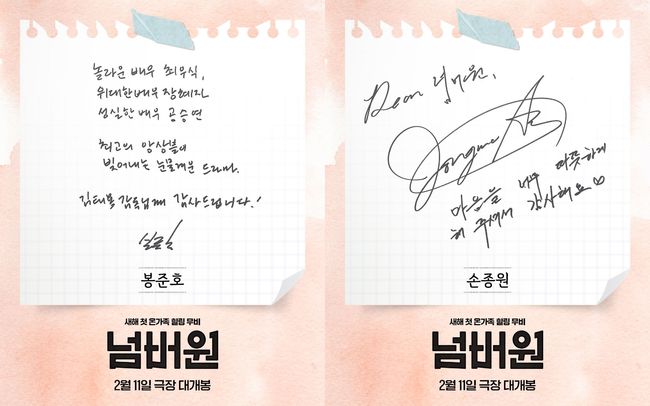 놀라운 배우 최우식,
위대한 배우 장혜진
성실한 배우 공승연
최고의 앙상블이
빚어내는 눈물겨운 드라마.
김태용 감독님께 감사드립니다!
봉준호
새해 첫 온가족 힐링 무비
넘버원
2월 11일 극장 대개봉
Dear 넘버원,
마음을 너무 따뜻하게
해 주셔서 감사해요♡
손종원
새해 첫 온가족 힐링 무비
넘버원
2월 11일 극장 대개봉